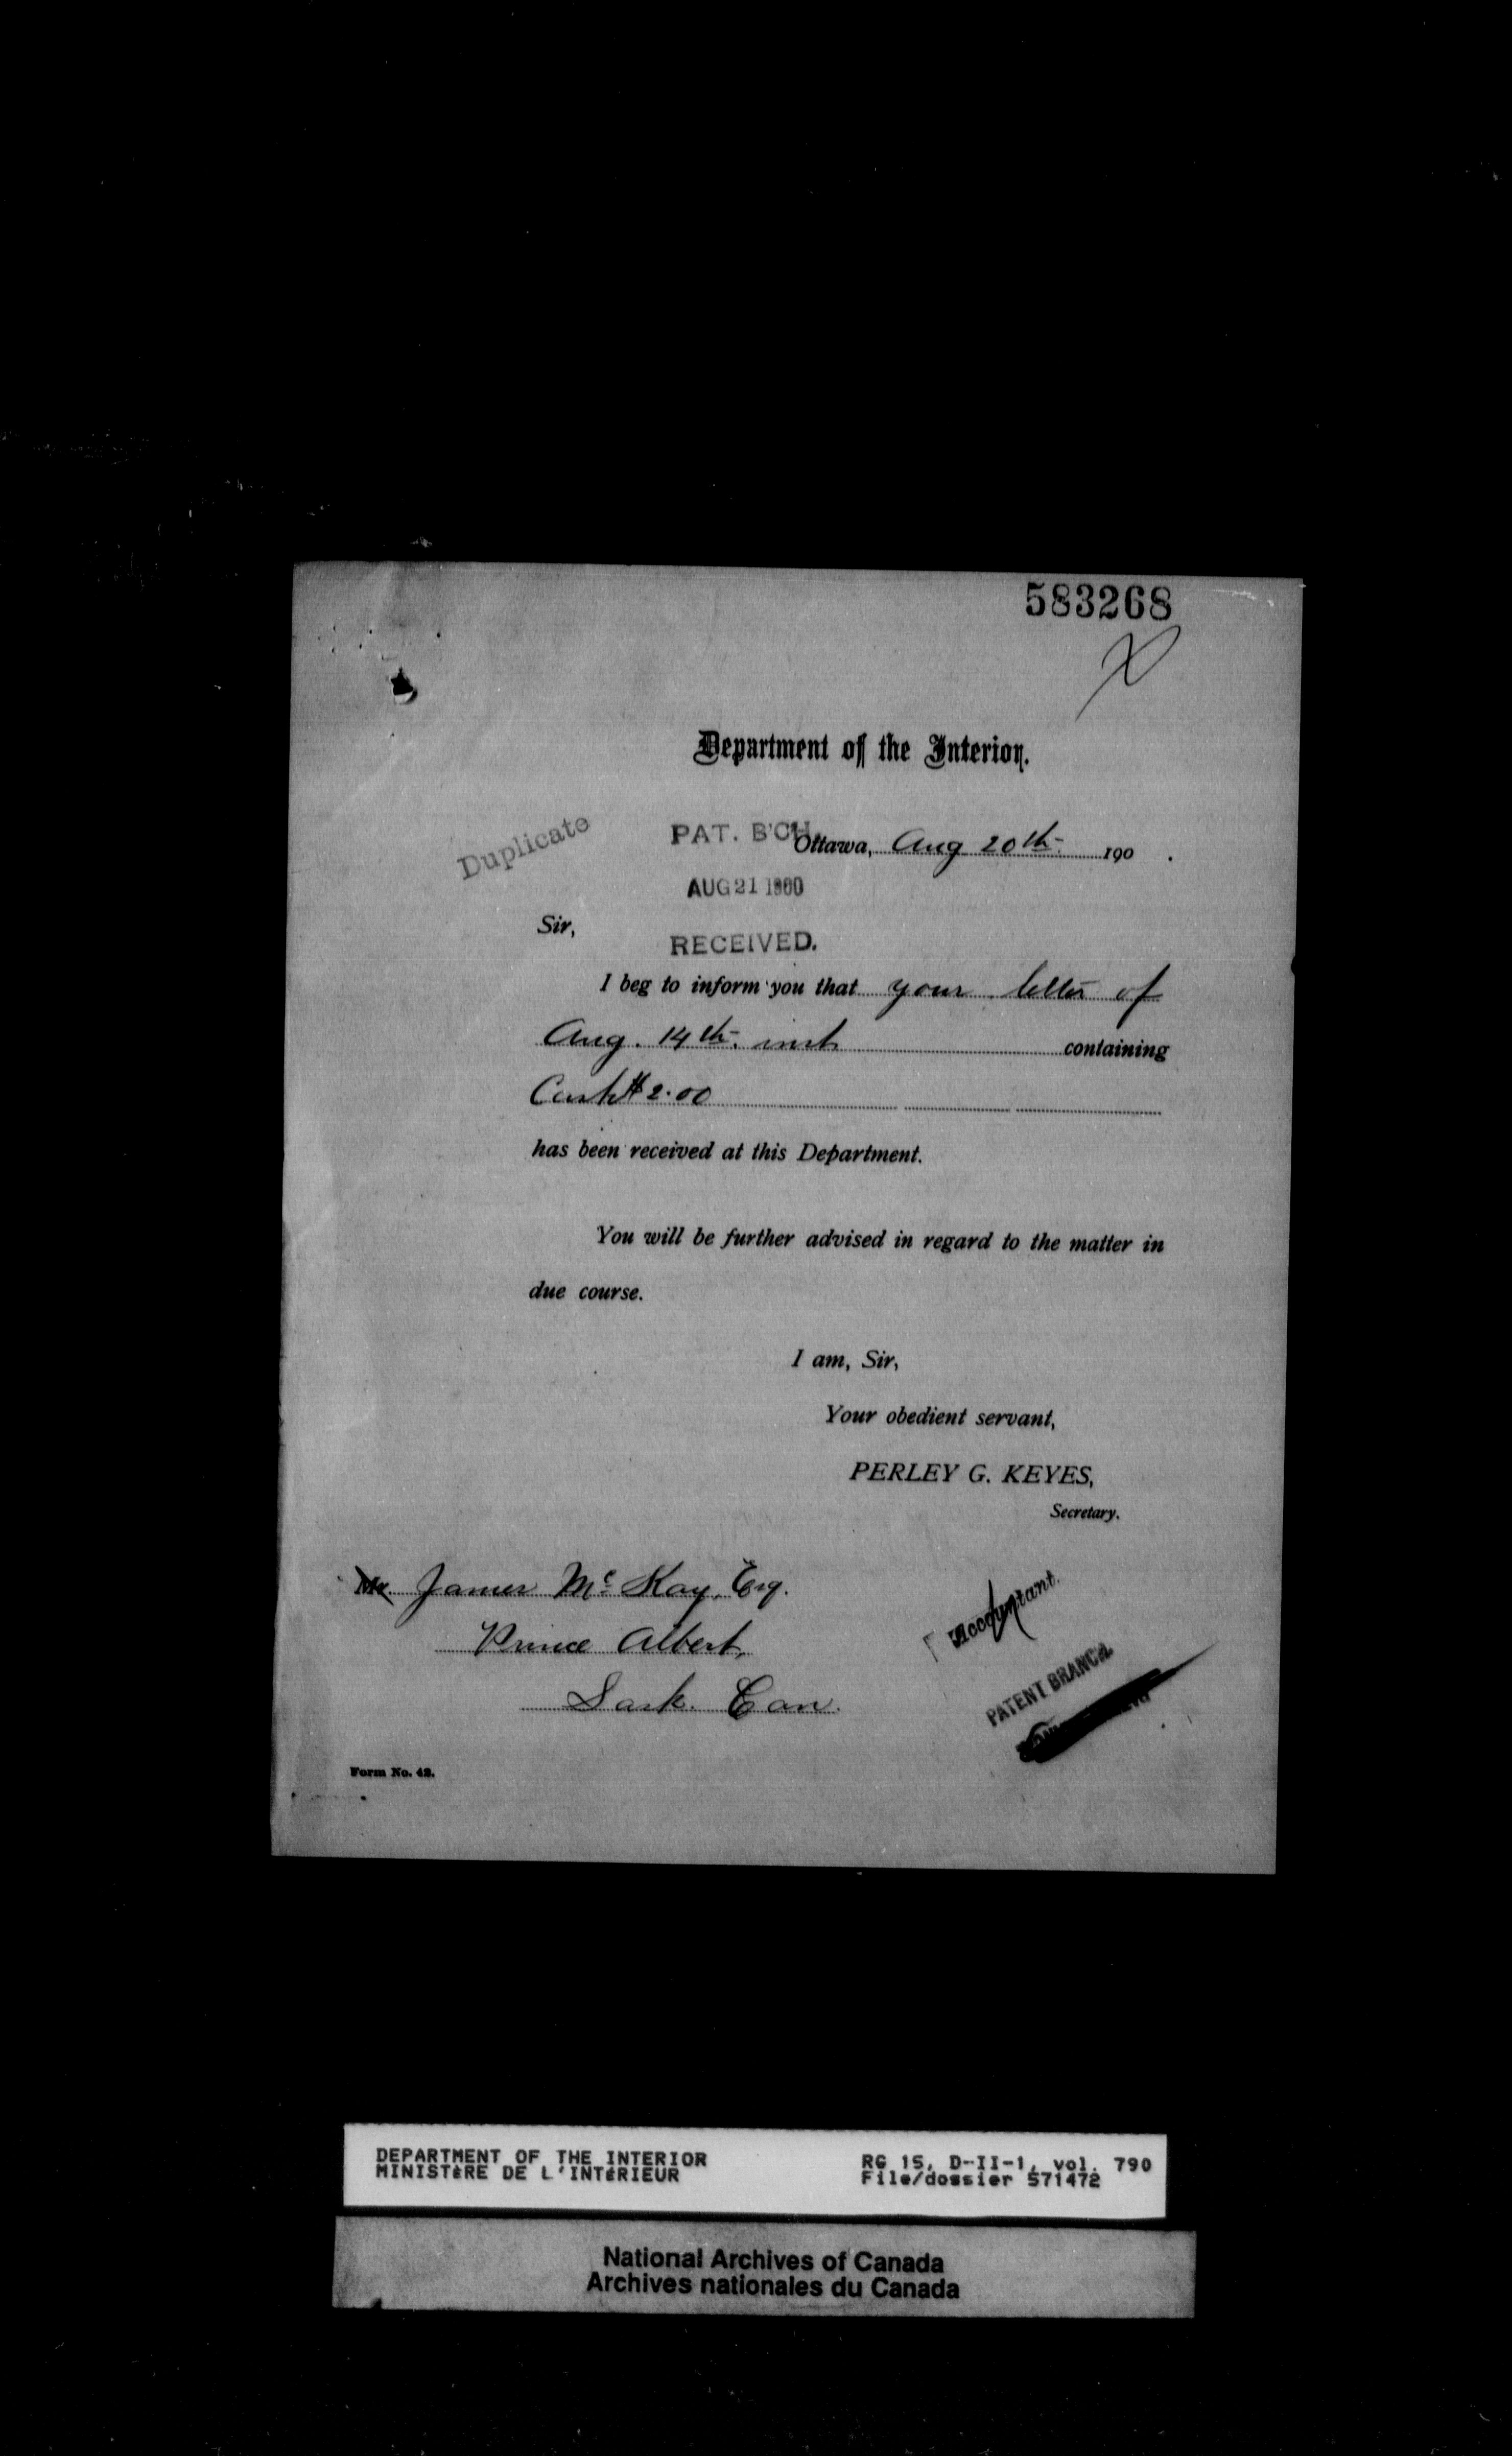 583268
Department of the Interior.
Duplicate
PAT. B'CH.
Ottawa, Aug 20th 190 .
AUG 21 1900
Sir,
RECEIVED.
I beg to inform you that your letter of
Aug. 14th. inst containing
Cash $2.00
has been received at this Department.
You will be further advised in regard to the matter in
due course.
I am, Sir,
Your obedient servant,
PERLEY G. KEYES,
Secretary.
Mr. James McKay, Esq.
Prince Albert,
Sask. Can.
Accountant.
PATENT BRANCH.
Form No. 42.
DEPARTMENT OF THE INTERIOR
MINISTÈRE DE L'INTÉRIEUR
RG 15, D-II-1, vol. 790
File/dossier 571472
National Archives of Canada
Archives nationales du Canada